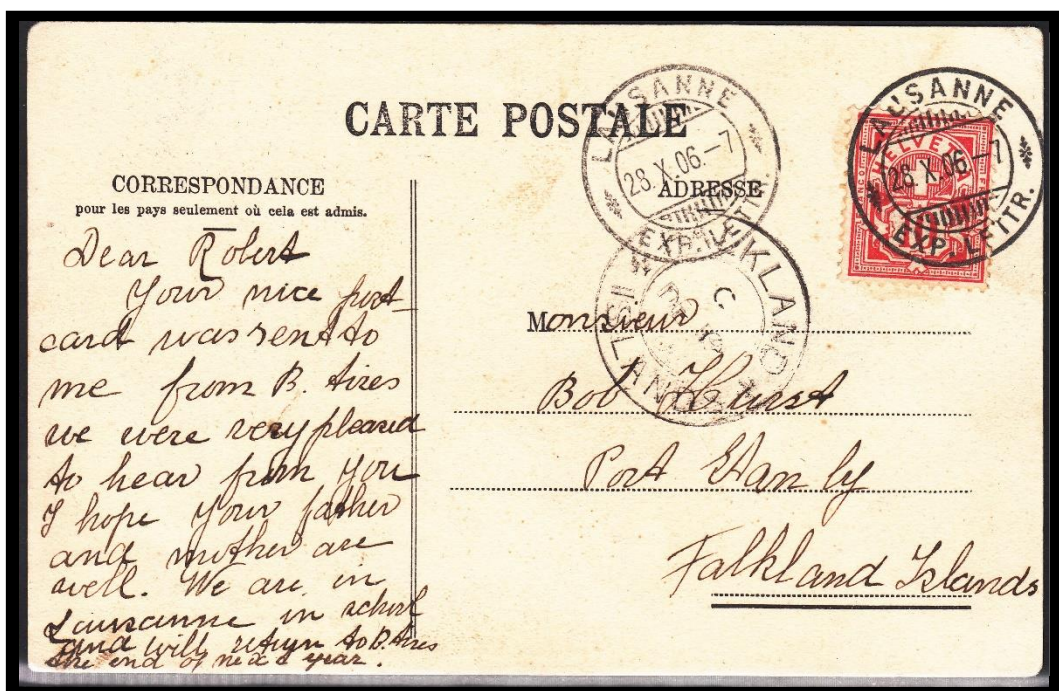 CARTE POSTALE
CORRESPONDANCE
pour les pays seulement où cela est admis.
Dear Robert
Your nice post
card was sent to
me from B. Aires
we were very pleased
to hear from you
I hope your father
and mother are
well. We are in
Lausanne in school
and will return to B. Aires
the end of next year.
LAUSANNE
28.X.06.-7
EXP. LETTR.
ADRESSE
LAUSANNE
28.X.06.-7
EXP. LETTR.
HELVETIA
10
FALKLAND ISLANDS
C
Monsieur
Bob Hurst
Port Stanly
Falkland Islands